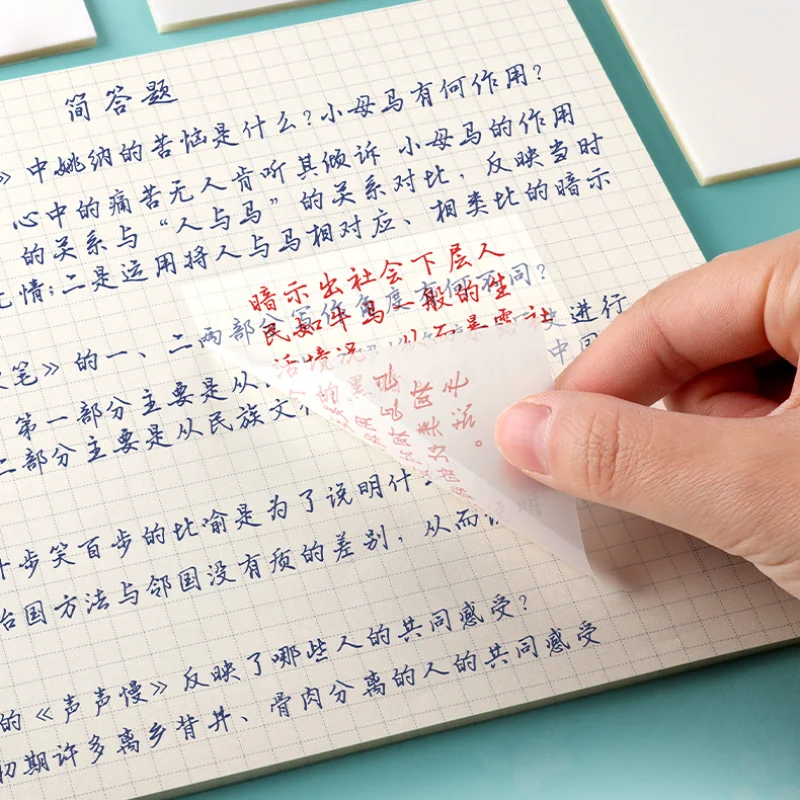 简答题
》中姚纳的苦恼是什么?小母马有何作用?
心中的痛苦无人肯听其倾诉 小母马的作用
的关系与“人与马”的关系对比,反映当时
无情;二是运用将人与马相对应、相类比的暗示
暗示出社会下层人
民如牛马一般的生
活境况,从而暴露社
的黑
一、二两部分写作角度有何不同?
笔》的
第一部分主要是从
进行
二部分主要是从民族文
中国
步笑百步的比喻是为了说明什
治国方法与邻国没有质的差别,从而说明
的《声声慢》反映了哪些人的共同感受?
初期许多离乡背井、骨肉分离的人的共同感受